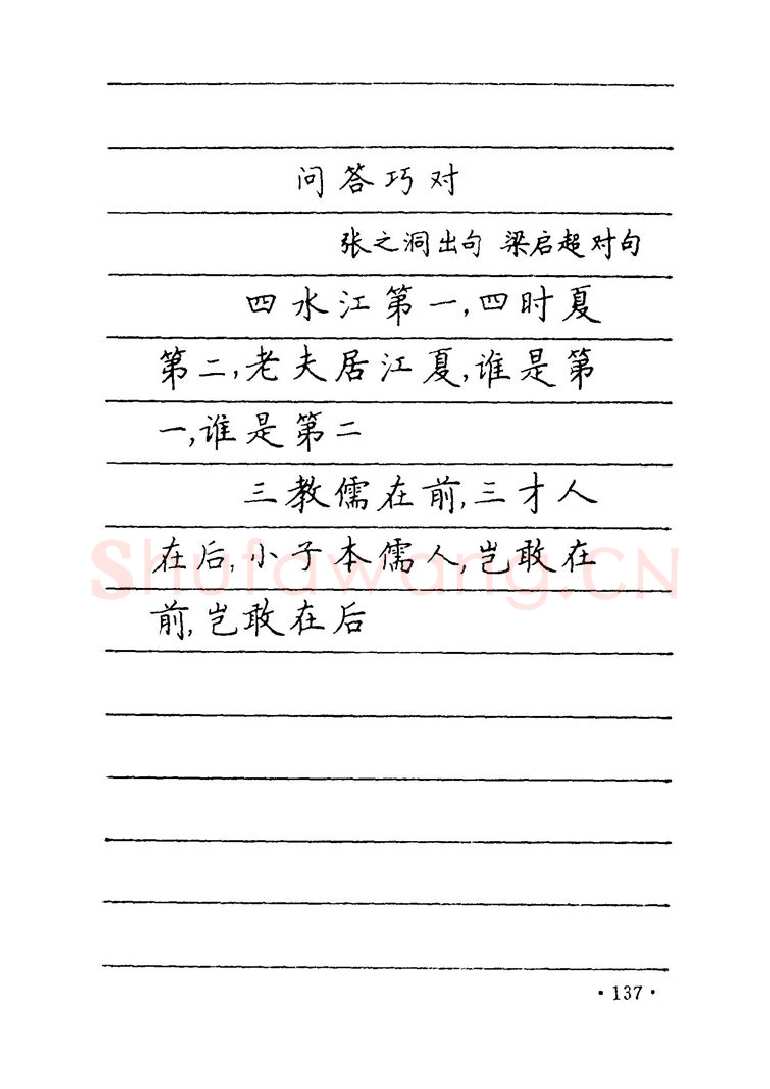 问答巧对
张之洞出句 梁启超对句
四水江第一,四时夏
第二,老夫居江夏,谁是第
一,谁是第二
三教儒在前,三才人
在后,小子本儒人,岂敢在
前,岂敢在后
Shufawang.CN
·137·